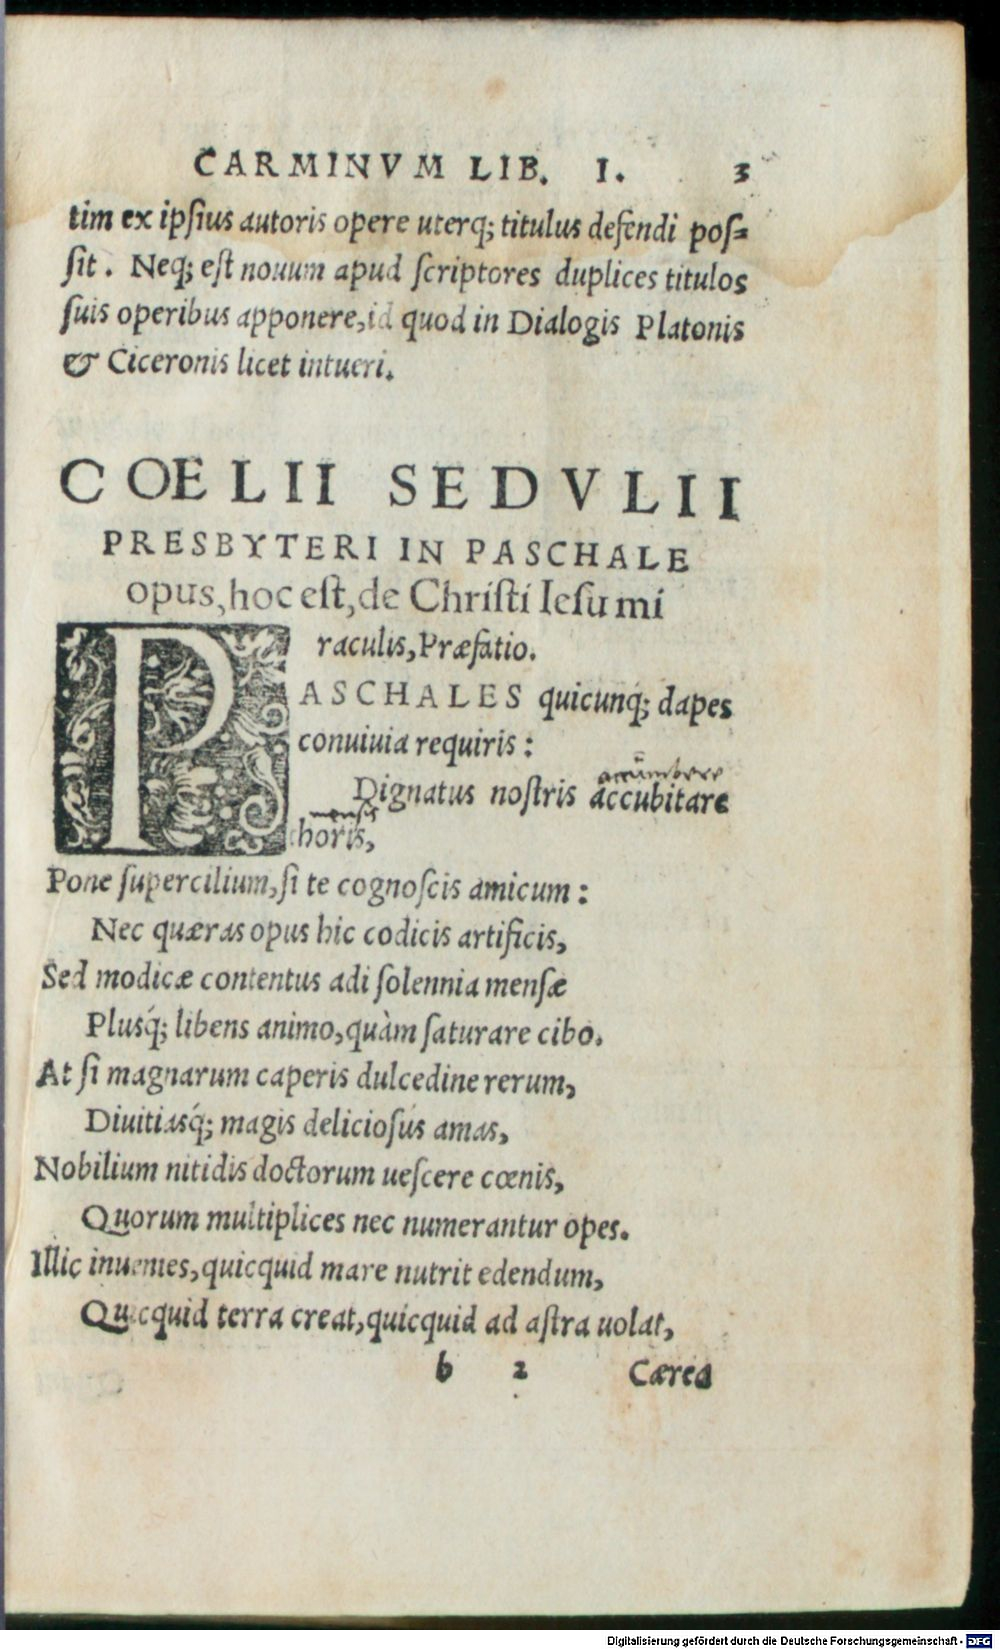 CARMINVM LIB. I. 3
tim ex ipſius autoris opere uterq; titulus defendi poſ=
ſit. Neq; eſt nouum apud ſcriptores duplices titulos
ſuis operibus apponere, id quod in Dialogis Platonis
& Ciceronis licet intueri.
COELII SEDVLII
PRESBYTERI IN PASCHALE
opus, hoc eſt, de Chriſti Ieſu mi
raculis, Præfatio.
PASCHALES quicunq; dapes
conuiuia requiris:
accūmbere
Dignatus noſtris accubitare
mensis
thoris,
Pone ſupercilium, ſi te cognoſcis amicum:
Nec quæras opus hic codicis artificis,
Sed modicæ contentus adi ſolennia menſæ
Plusq́; libens animo, quàm ſaturare cibo.
At ſi magnarum caperis dulcedine rerum,
Diuitiasq́; magis delicioſus amas,
Nobilium nitidis doctorum ueſcere cœnis,
Quorum multiplices nec numerantur opes.
Illic inuenies, quicquid mare nutrit edendum,
Quicquid terra creat, quicquid ad aſtra uolat,
b 2 Cærea
Digitalisierung gefördert durch die Deutsche Forschungsgemeinschaft - DFG